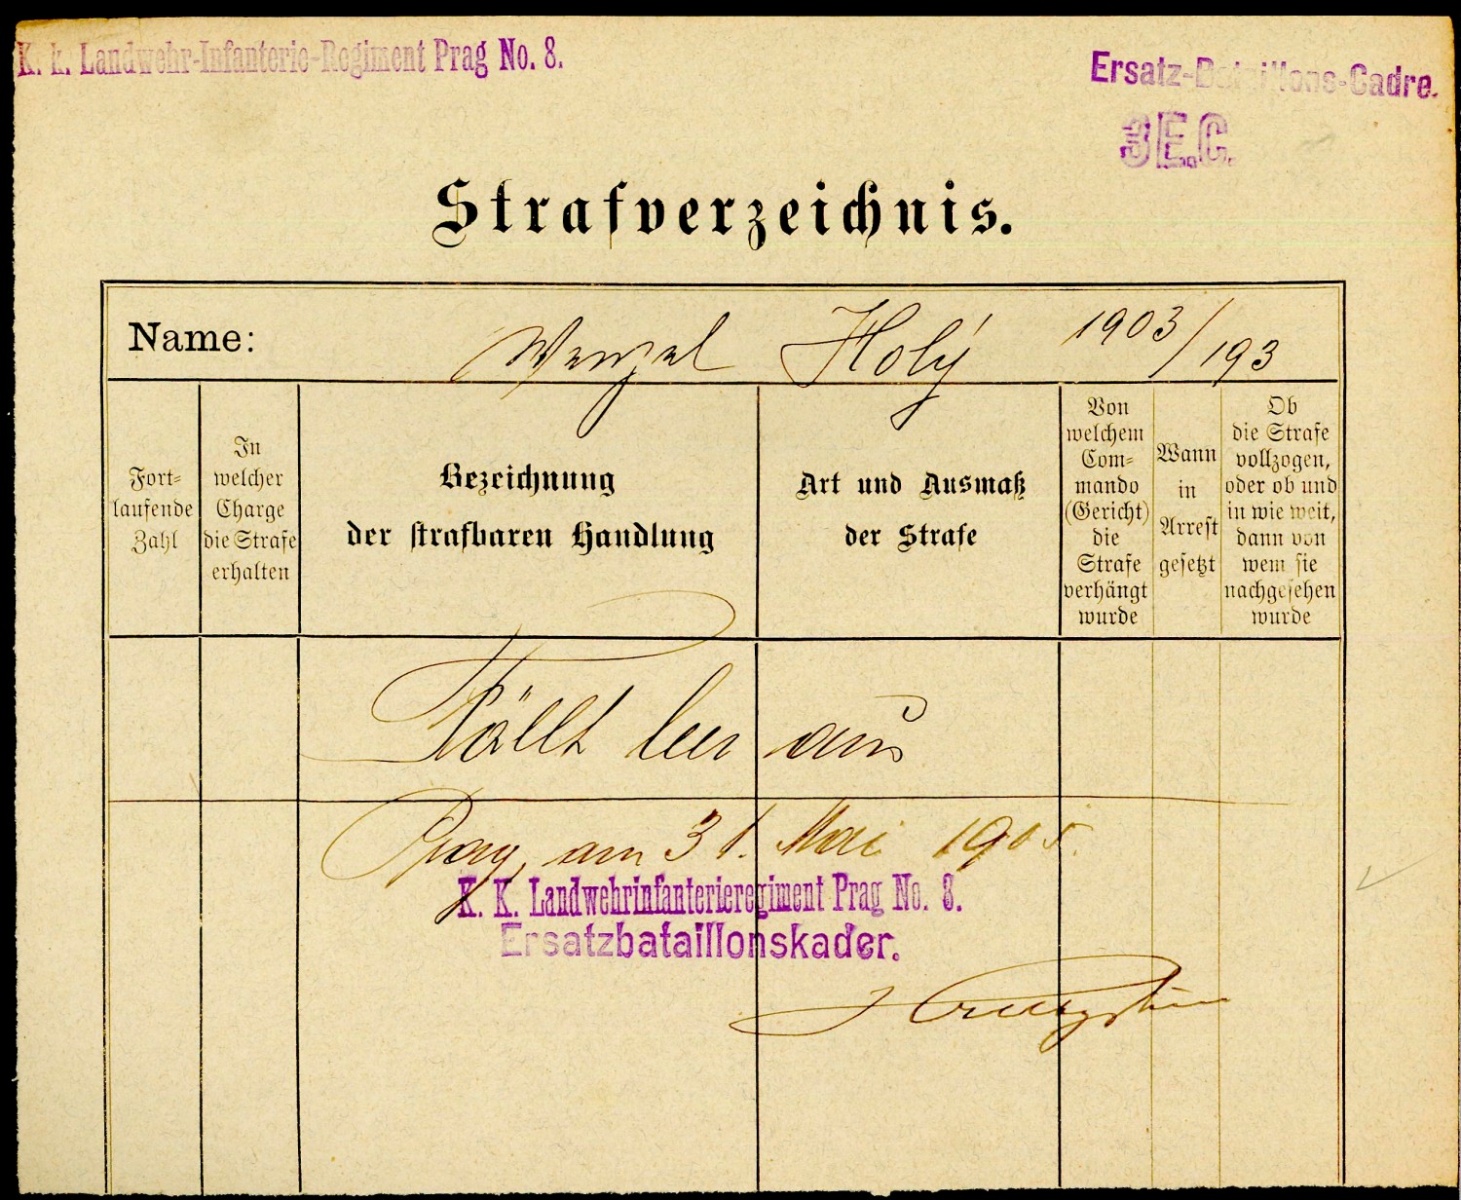 K. k. Landwehr-Infanterie-Regiment Prag No. 8.
Ersatz-Bataillons-Cadre.
E.C.
Strafverzeichnis.
Name: Wenzel Holý 1903/193
Fort-
laufende
Zahl
In
welcher
Charge
die Strafe
erhalten
Bezeichnung
der strafbaren Handlung
Art und Ausmaß
der Strafe
Von
welchem
Com-
mando
(Gericht)
die
Strafe
verhängt
wurde
Wann
in
Arrest
gesetzt
Ob
die Strafe
vollzogen,
oder ob und
in wie weit,
dann von
wem sie
nachgesehen
wurde
Fällt leer aus
Prag, am 31. Mai 1905.
K. K. Landwehrinfanterieregiment Prag No. 8.
Ersatzbataillonskader.